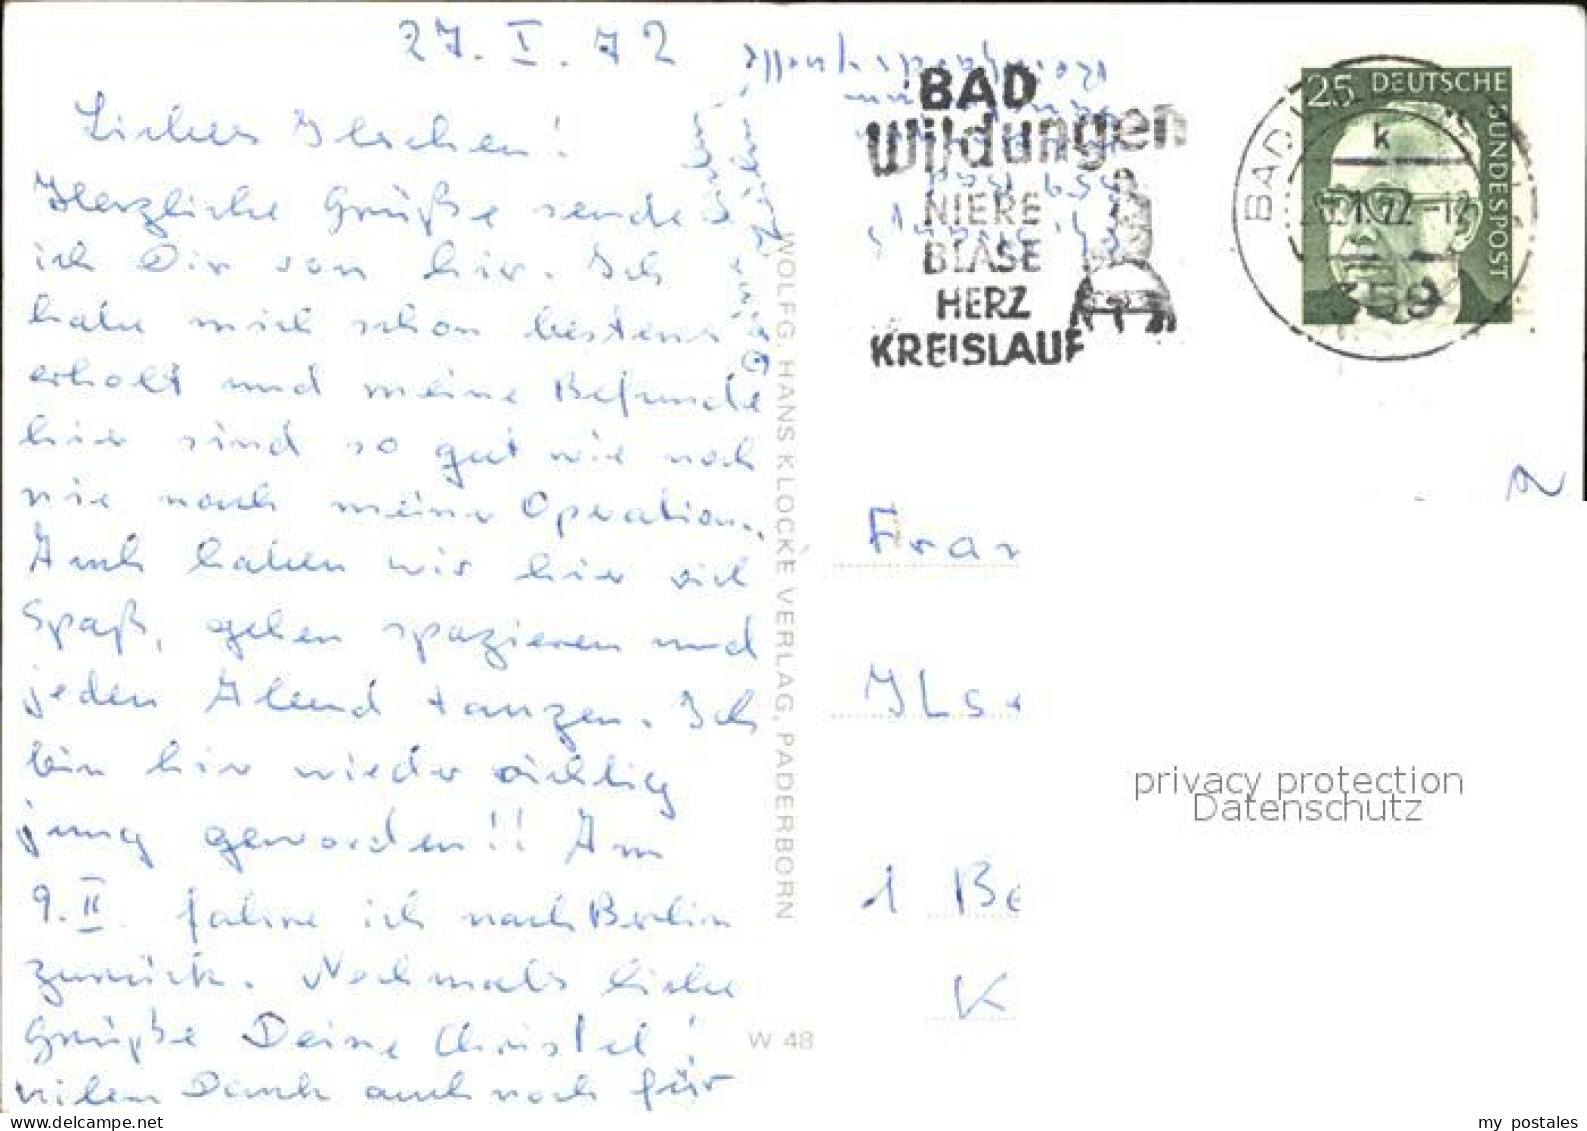 27. I. 72
Liebes Ilschen!
Herzliche Grüße sende
ich Dir von hier. Ich
habe mich schon bestens
erholt und meine Befunde
hier sind so gut wie noch
nie nach meiner Operation.
Auch haben wir hier viel
Spaß, gehen spazieren und
jeden Abend tanzen. Ich
bin hier wieder richtig
jung geworden!! Am
9. II. fahre ich nach Berlin
zurück. Nochmals liebe
Grüße Deine Christel!
vielen Dank auch noch für
WOLFG. HANS KLOCKE VERLAG, PADERBORN
W 48
BAD
Wildungen
NIERE
BLASE
HERZ
KREISLAUF
BAD
k
359
25 DEUTSCHE
BUNDESPOST
Frau
Ilse
1 Be
K
privacy protection
Datenschutz
www.delcampe.net
my_postales